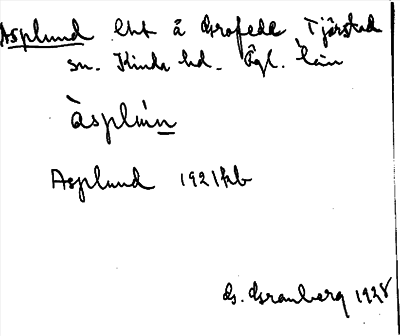 Asplund lht å Grafede Tjärstad
sn. Kinda hd. Ögl. län
Àsplùn
Asplund 1921 kb
G. Granberg 1928